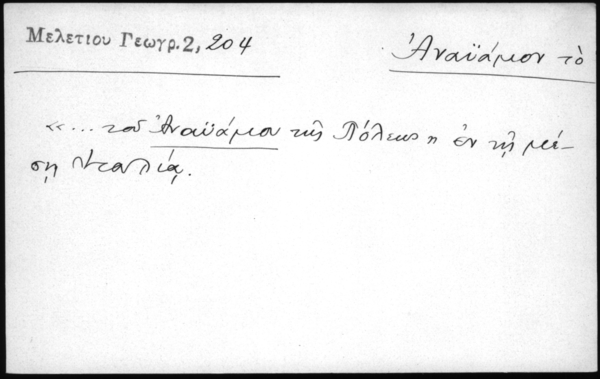 Μελετίου Γεωγρ. 2, 204
Ἀναϊάμιον τὸ
«... τοῦ Ἀναϊάμου τῆς Πόλεως» ἐν τῇ μέ-
σῃ Ἰταλίᾳ.